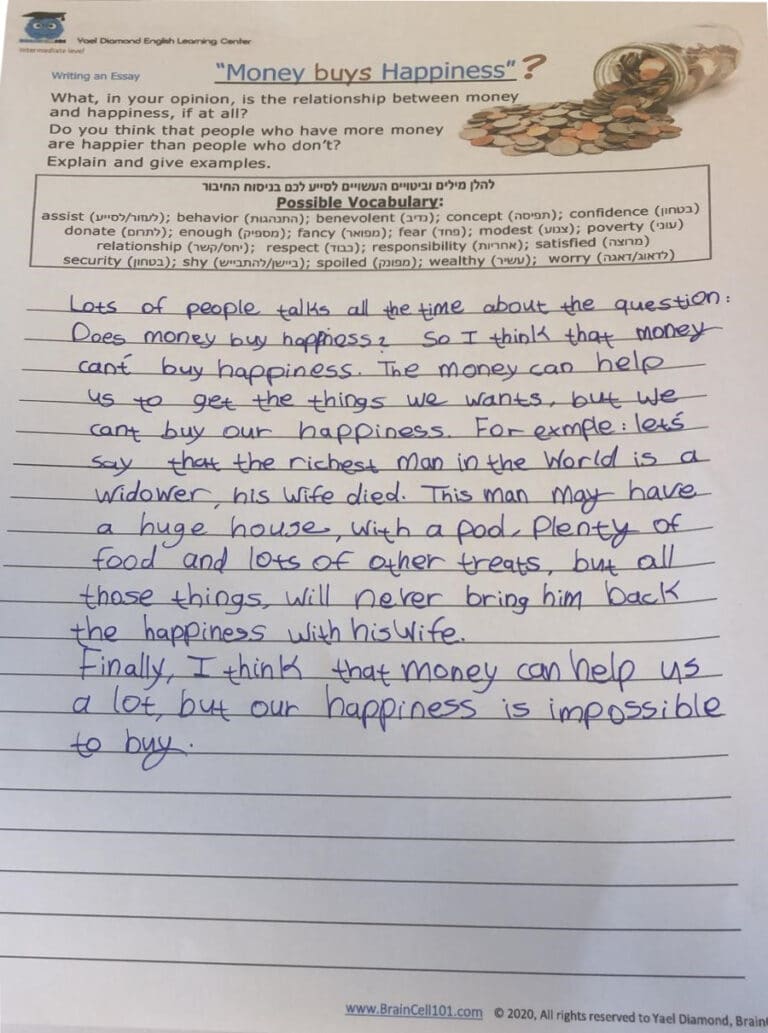 Yael Diamond English Learning Center
Intermediate level
Writing an Essay
"Money buys Happiness"?
What, in your opinion, is the relationship between money
and happiness, if at all?
Do you think that people who have more money
are happier than people who don't?
Explain and give examples.
להלן מילים וביטויים העשויים לסייע לכם בניסוח החיבור
Possible Vocabulary:
assist (לעזור/לסייע); behavior (התנהגות); benevolent (נדיב); concept (תפיסה); confidence (בטחון)
donate (לתרום); enough (מספיק); fancy (מפואר); fear (פחד); modest (צנוע); poverty (עוני)
relationship (יחס/קשר); respect (כבוד); responsibility (אחריות); satisfied (מרוצה)
security (בטחון); shy (ביישן/להתבייש); spoiled (מפונק); wealthy (עשיר); worry (לדאוג/דאגה)
Lots of people talks all the time about the question:
Does money buy happiness? So I think that money
can't buy happiness. The money can help
us to get the things we wants, but we
cant buy our happiness. For exmple: let's
say that the richest man in the world is a
widower, his wife died. This man may have
a huge house, with a pool, Plenty of
food and lots of other treats, but all
those things, will never bring him back
the happiness with his wife.
Finally, I think that money can help us
a lot, but our happiness is impossible
to buy.
www.BrainCell101.com © 2020, All rights reserved to Yael Diamond, Brain